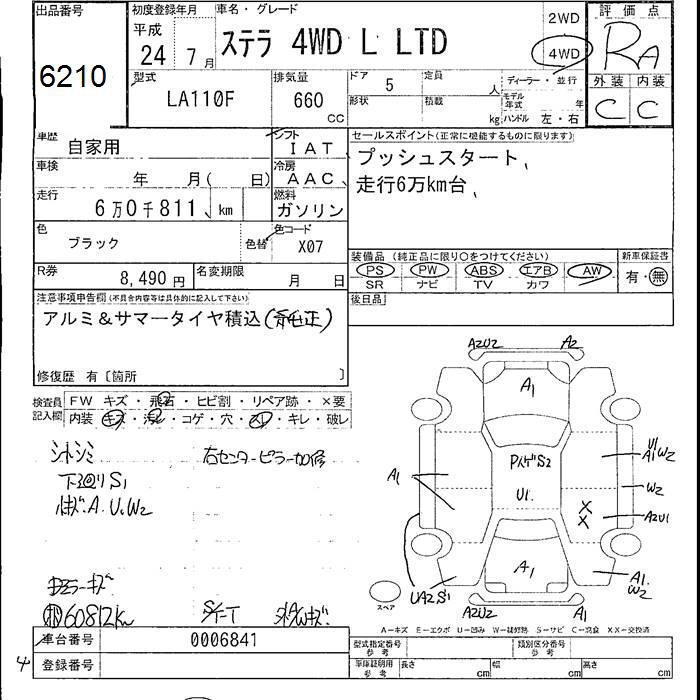 出品番号
6210
初度登録年月
平成
24年 7月
車名・グレード
ステラ 4WD L LTD
2WD
4WD
評価点
RA
外装 内装
C C
型式
LA110F
排気量
660
CC
ドア 5
形状
定員 人
積載 kg
ディーラー・並行
モデル年式 年
ハンドル 左・右
車歴
自家用
シフト
IAT
セールスポイント(正常に機能するものに限ります)
プッシュスタート、
走行6万km台、
車検
年 月( 日)
冷房
AAC
走行
6万0千811 km
燃料
ガソリン
色
ブラック
色替
色コード
X07
装備品 (純正品に限り○をつけてください)
新車保証書
PS PW ABS エアB AW
有・無
SR ナビ TV カワ
R券
8,490円
名変期限
月 日
後日品
注意事項申告欄(不具合内容等は具体的に記入して下さい)
アルミ&サマータイヤ積込
修復歴 有〔箇所 〕
検査員記入欄
FW キズ・飛石・ヒビ割・リペア跡・×要
内装・キズ・汚レ・コゲ・穴・スレ・キレ・破レ
シートシミ
右センターピラー加修
下廻りS1
A.U.W2
60812km
車台番号
0006841
登録番号
A2U2
A2
A1
A1
U1
A1W2
W2
A2U1
U1.
X
X
A1
A1.
W2
UA2S1
A2U2
A1
スペア
A―キズ E―エクボ U―凹み W―補修跡 S―サビ C―腐食 XX―交換済
型式指定番号
参考
類別区分番号
参考
車庫証明用
参考
長さ cm
幅 cm
高さ cm